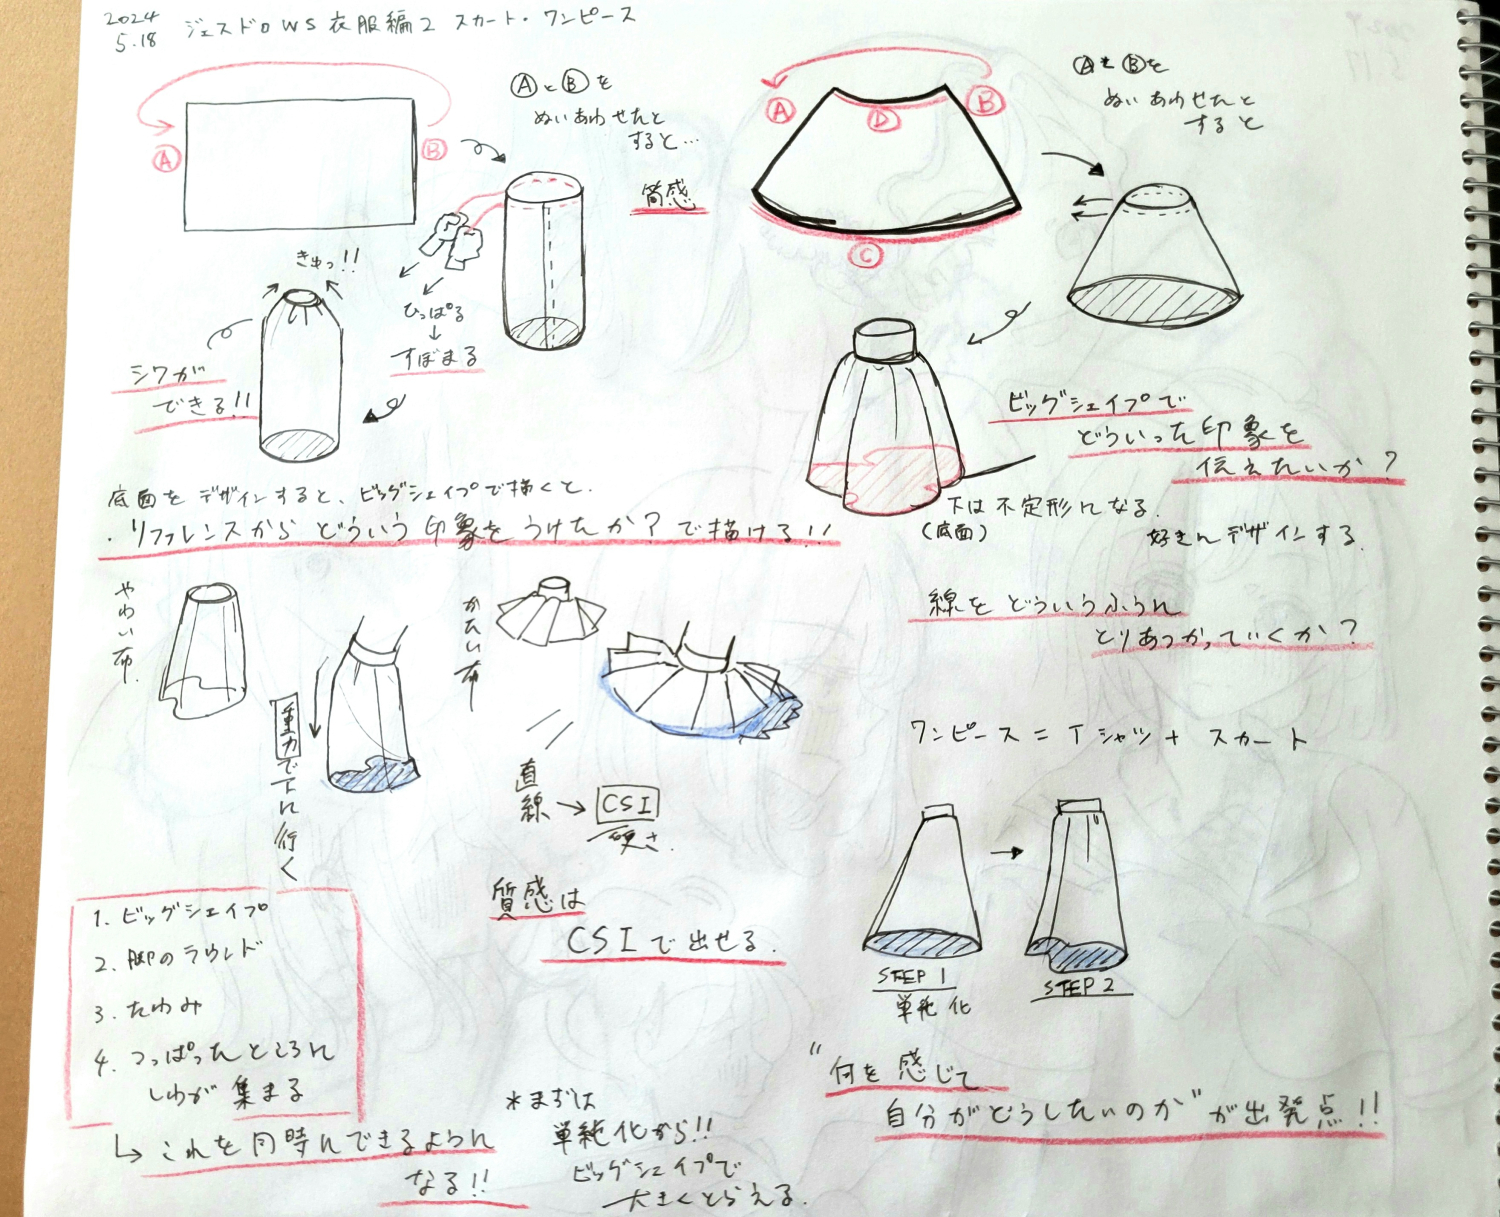 2024
5.18
ジェスドロWS 衣服編2 スカート・ワンピース
ⒶとⒷを
ぬいあわせたと
すると…
Ⓐ
Ⓑ
筒感
ひっぱる
↓
すぼまる
きゅっ!!
シワが
できる!!
ⒶとⒷを
ぬいあわせたと
すると
Ⓐ
Ⓑ
Ⓓ
Ⓒ
ビッグシェイプで
どういった印象を
伝えたいか?
下は不定形になる.
(底面)
好きにデザインする.
底面をデザインすると、ビッグシェイプで描くと.
・リファレンスからどういう印象をうけたか?で描ける!!
やわい布.
重力で下に行く
かたい布
直線→CSI
硬さ.
質感は
CSIで出せる.
線をどういうふうに
とりあつかっていくか?
ワンピース=Tシャツ+スカート
STEP 1
単純化
STEP 2
1. ビッグシェイプ
2. 脚のラウンド
3. たわみ
4. つっぱったところに
しわが集まる
↳これを同時にできるように
なる!!
*まずは
単純化から!!
ビッグシェイプで
大きくとらえる.
"何を感じて
自分がどうしたいのか"が出発点!!